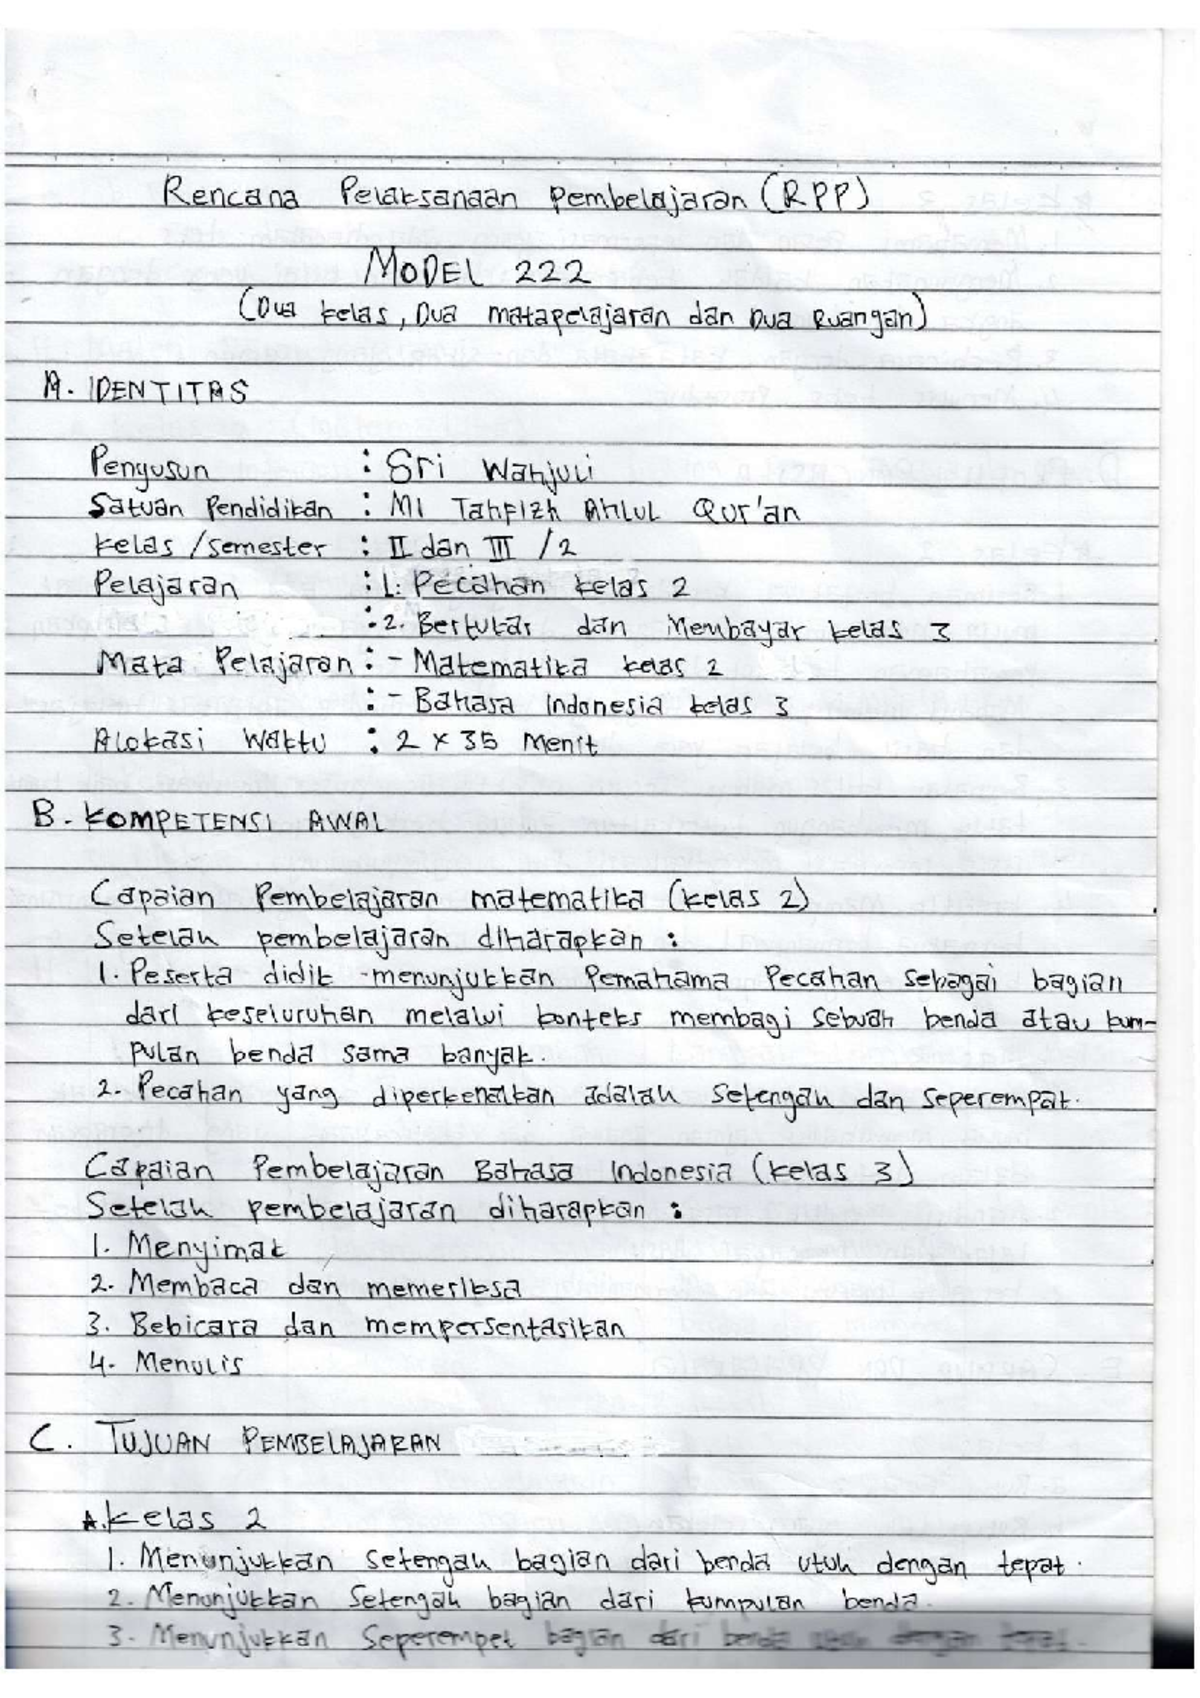 Rencana Pelaksanaan Pembelajaran (RPP)
MODEL 222
(Dua kelas, Dua matapelajaran dan Dua Ruangan)
A. IDENTITAS
Penyusun : Sri Wahjuli
Satuan Pendidikan : MI Tahfizh Ahlul Qur'an
Kelas /semester : II dan III /2
Pelajaran : 1. Pecahan kelas 2
: 2. Bertukar dan Membayar kelas 3
Mata Pelajaran : - Matematika kelas 2
: - Bahasa Indonesia kelas 3
Alokasi Waktu : 2 x 35 Menit
B. KOMPETENSI AWAL
Capaian Pembelajaran matematika (kelas 2)
Setelah pembelajaran diharapkan :
1. Peserta didik menunjukkan Pemahama Pecahan sebagai bagian
dari keseluruhan melalui konteks membagi sebuah benda atau kum-
pulan benda sama banyak.
2. Pecahan yang diperkenalkan adalah Setengah dan Seperempat.
Capaian Pembelajaran Bahasa Indonesia (kelas 3)
Setelah pembelajaran diharapkan :
1. Menyimak
2. Membaca dan memeriksa
3. Bebicara dan mempersentasikan
4. Menulis
C. TUJUAN PEMBELAJARAN
A. Kelas 2
1. Menunjukkan setengah bagian dari benda utuh dengan tepat.
2. Menunjukkan Setengah bagian dari kumpulan benda.
3. Menunjukkan Seperempet bagian dari benda utuh dengan tepat.